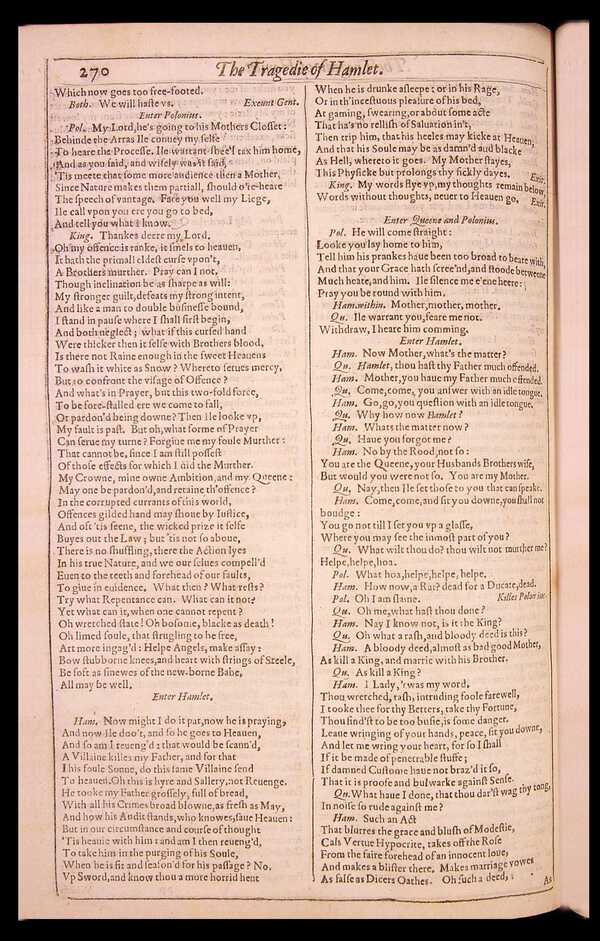 270
The Tragedie of Hamlet.
Which now goes too free-footed.
Both. We will haſte vs. Exeunt Gent.
Enter Polonius.
Pol. My Lord,he's going to his Mothers Cloſſet:
Behinde the Arras Ile conuey my ſelfe
To heare the Proceſſe. Ile warrant ſhee'l tax him home,
And as you ſaid, and wiſely was it ſaid,
'Tis meete that ſome more audience then a Mother,
Since Nature makes them partiall, ſhould o're-heare
The ſpeech of vantage. Fare you well my Liege,
Ile call vpon you ere you go to bed,
And tell you what I know.
King. Thankes deere my Lord.
Oh my offence is ranke, it ſmels to heauen,
It hath the primall eldeſt curſe vpon't,
A Brothers murther. Pray can I not,
Though inclination be as ſharpe as will:
My ſtronger guilt,defeats my ſtrong intent,
And like a man to double buſineſſe bound,
I ſtand in pauſe where I ſhall firſt begin,
And both neglect; what if this curſed hand
Were thicker then it ſelfe with Brothers blood,
Is there not Raine enough in the ſweet Heauens
To waſh it white as Snow? Whereto ſerues mercy,
But to confront the viſage of Offence?
And what's in Prayer, but this two-fold force,
To be fore-ſtalled ere we come to fall,
Or pardon'd being downe? Then Ile looke vp,
My fault is paſt. But oh,what forme of Prayer
Can ſerue my turne? Forgiue me my foule Murther:
That cannot be, ſince I am ſtill poſſeſt
Of thoſe effects for which I did the Murther.
My Crowne, mine owne Ambition,and my Queene:
May one be pardon'd,and retaine th'offence?
In the corrupted currants of this world,
Offences gilded hand may ſhoue by Iuſtice,
And oft 'tis ſeene, the wicked prize it ſelfe
Buyes out the Law; but 'tis not ſo aboue,
There is no ſhuffling, there the Action lyes
In his true Nature, and we our ſelues compell'd
Euen to the teeth and forehead of our faults,
To giue in euidence. What then? What reſts?
Try what Repentance can. What can it not?
Yet what can it,when one cannot repent?
Oh wretched ſtate! Oh boſome, blacke as death!
Oh limed ſoule, that ſtrugling to be free,
Art more ingag'd: Helpe Angels, make aſſay:
Bow ſtubborne knees,and heart with ſtrings of Steele,
Be ſoft as ſinewes of the new-borne Babe,
All may be well.
Enter Hamlet.
Ham. Now might I do it pat,now he is praying,
And now Ile doo't, and ſo he goes to Heauen,
And ſo am I reueng'd: that would be ſcann'd,
A Villaine killes my Father, and for that
I his foule Sonne, do this ſame Villaine ſend
To heauen.Oh this is hyre and Sallery,not Reuenge.
He tooke my Father groſſely, full of bread,
With all his Crimes broad blowne,as freſh as May,
And how his Audit ſtands,who knowes,ſaue Heauen:
But in our circumſtance and courſe of thought
'Tis heauie with him: and am I then reueng'd,
To take him in the purging of his Soule,
When he is fit and ſeaſon'd for his paſſage? No.
Vp Sword,and know thou a more horrid hent
When he is drunke aſleepe: or in his Rage,
Or in th'inceſtuous pleaſure of his bed,
At gaming, ſwearing,or about ſome acte
That ha's no relliſh of Saluation in't,
Then trip him, that his heeles may kicke at Heauen,
And that his Soule may be as damn'd and blacke
As Hell, whereto it goes. My Mother ſtayes,
This Phyſicke but prolongs thy ſickly dayes. Exit.
King. My words flye vp,my thoughts remain below,
Words without thoughts, neuer to Heauen go. Exit.
Enter Queene and Polonius.
Pol. He will come ſtraight:
Looke you lay home to him,
Tell him his prankes haue been too broad to beare with,
And that your Grace hath ſcree'nd,and ſtoode betweene
Much heate,and him. Ile ſilence me e'ene heere:
Pray you be round with him.
Ham.within. Mother,mother, mother.
Qu. Ile warrant you,feare me not.
Withdraw, I heare him comming.
Enter Hamlet.
Ham. Now Mother,what's the matter?
Qu. Hamlet, thou haſt thy Father much offended.
Ham. Mother,you haue my Father much offended.
Qu. Come,come, you anſwer with an idle tongue.
Ham. Go,go,you queſtion with an idle tongue.
Qu. Why how now Hamlet?
Ham. Whats the matter now?
Qu. Haue you forgot me?
Ham. No by the Rood,not ſo:
You are the Queene,your Husbands Brothers wife,
But would you were not ſo. You are my Mother.
Qu. Nay,then Ile ſet thoſe to you that can ſpeake.
Ham. Come,come,and ſit you downe,you ſhall not
boudge:
You go not till I ſet you vp a glaſſe,
Where you may ſee the inmoſt part of you?
Qu. What wilt thou do? thou wilt not murther me?
Helpe,helpe,hoa.
Pol. What hoa,helpe,helpe, helpe.
Ham. How now,a Rat? dead for a Ducate,dead.
Pol. Oh I am ſlaine. Killes Polonius.
Qu. Oh me,what haſt thou done?
Ham. Nay I know not, is it the King?
Qu. Oh what a raſh,and bloody deed is this?
Ham. A bloody deed,almoſt as bad good Mother,
As kill a King, and marrie with his Brother.
Qu. As kill a King?
Ham. I Lady,'twas my word.
Thou wretched, raſh, intruding foole farewell,
I tooke thee for thy Betters, take thy Fortune,
Thou find'ſt to be too buſie,is ſome danger.
Leaue wringing of your hands, peace, ſit you downe,
And let me wring your heart, for ſo I ſhall
If it be made of penetrable ſtuffe;
If damned Cuſtome haue not braz'd it ſo,
That it is proofe and bulwarke againſt Senſe.
Qu.What haue I done, that thou dar'ſt wag thy tong,
In noiſe ſo rude againſt me?
Ham. Such an Act
That blurres the grace and bluſh of Modeſtie,
Cals Vertue Hypocrite, takes off the Roſe
From the faire forehead of an innocent loue,
And makes a bliſter there. Makes marriage vowes
As falſe as Dicers Oathes. Oh ſuch a deed,
As